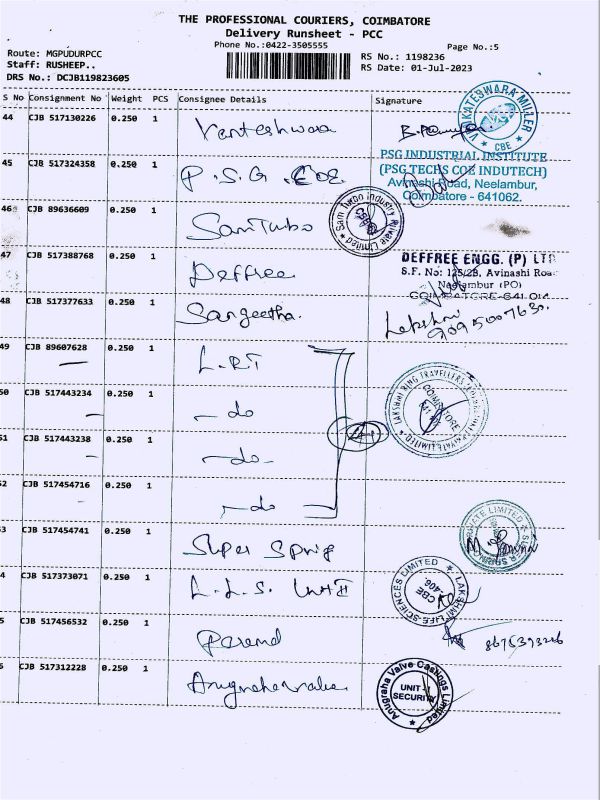 THE PROFESSIONAL COURIERS, COIMBATORE
Delivery Runsheet - PCC
Phone No.:0422-3505555
Page No.:5
Route: MGPUDURPCC
RS No.: 1198236
Staff: RUSHEEP..
RS Date: 01-Jul-2023
DRS No.: DCJB119823605
S No Consignment No Weight PCS Consignee Details Signature
44 CJB 517130226 0.250 1 Venteshwara
VENKATESWARA MILLER CBE
45 CJB 517324358 0.250 1 P.S.G. COE
PSG INDUSTRIAL INSTITUTE
(PSG TECHS COE INDUTECH)
Avinashi Road, Neelambur,
Coimbatore - 641062.
46 CJB 89636609 0.250 1 Sam Turbo
Sam Turbo Industry Private Limited
47 CJB 517388768 0.250 1 Deffree
DEFFREE ENGG. (P) LTD
S.F. No: 125/2B, Avinashi Roa
Neelambur (PO)
COIMBATORE-641 014
48 CJB 517377633 0.250 1 Sangeetha.
Lakshmi
9095007630.
49 CJB 89607628 0.250 1 L.R.T
50 CJB 517443234 0.250 1 - do
COIMBATORE
51 CJB 517443238 0.250 1 - do -
52 CJB 517454716 0.250 1 - do -
3 CJB 517454741 0.250 1 Super Spring
4 CJB 517373071 0.250 1 L.L.S. Unit II
LAKSHMI LIFE SCIENCES LIMITED CBE
5 CJB 517456532 0.250 1
6 CJB 517312228 0.250 1
Anugraha Valve Castings Limited
UNIT-
SECURITY